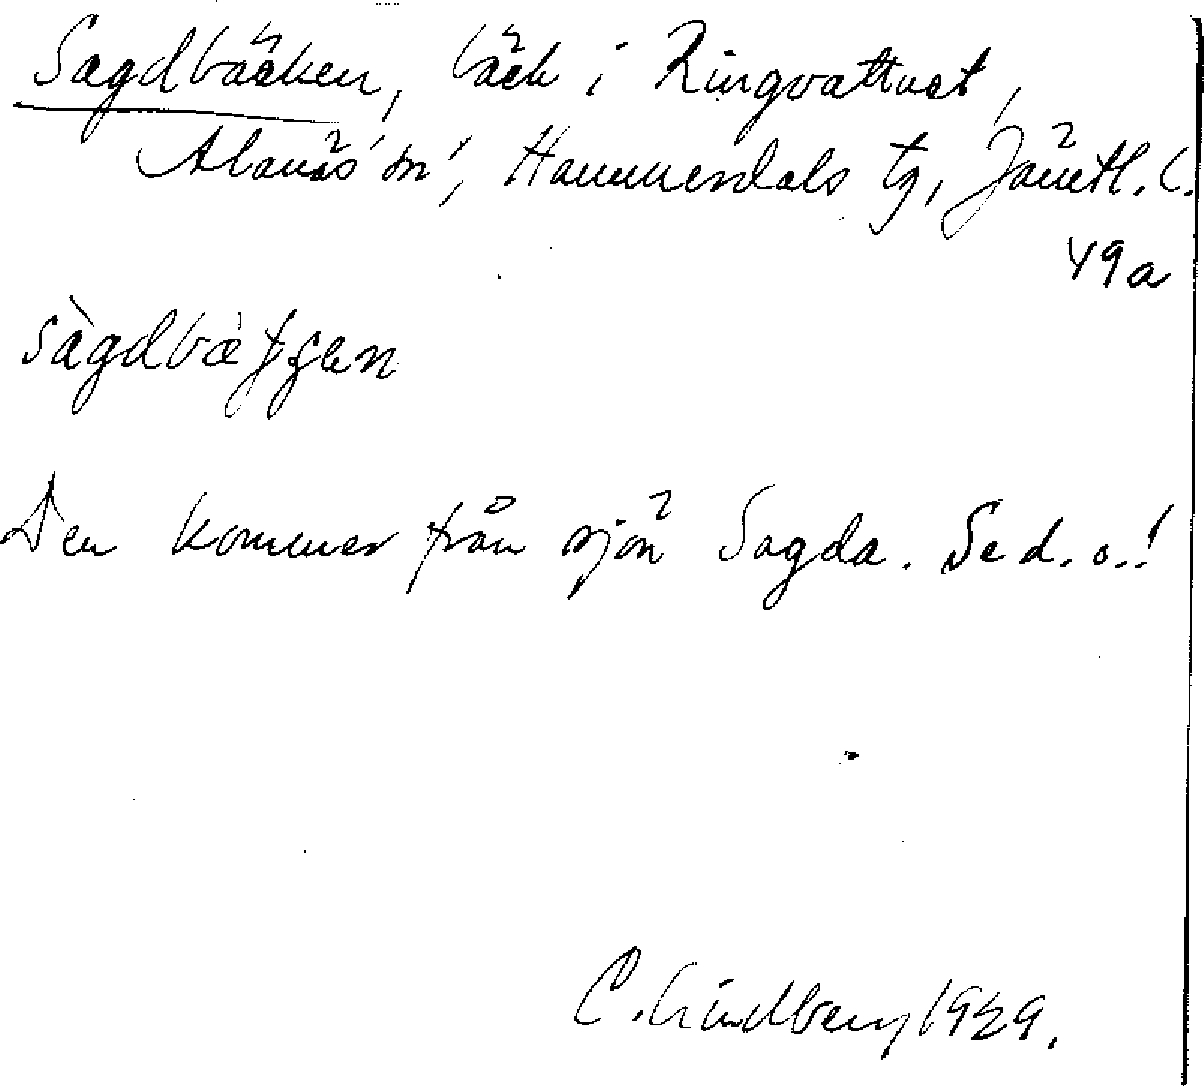 Sagdbäcken, bäck i Ringvattnet,
Alanäs sn, Hammerdals tg, Jämtl. l.
49a
Den kommer från sjön Sagda. Se d. o.!
C. Lindberg 1929.